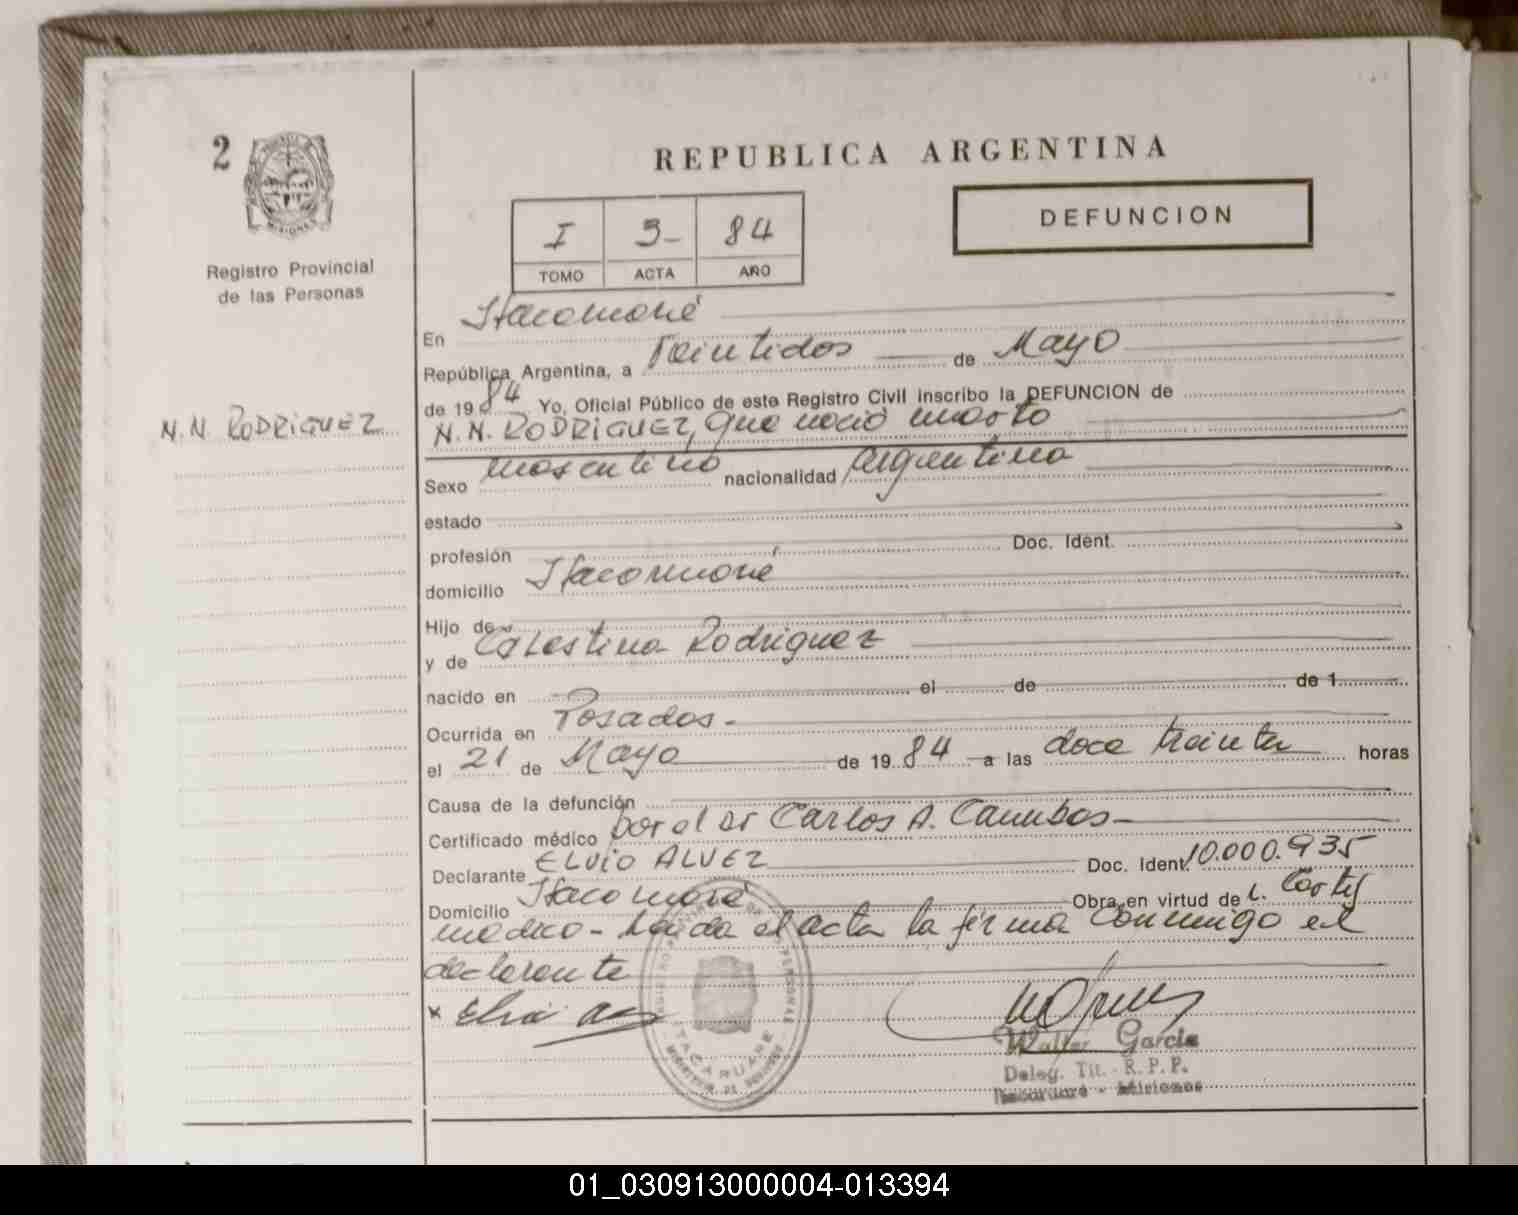 2
REPUBLICA ARGENTINA
I 3- 84
TOMO ACTA AÑO
DEFUNCION
Registro Provincial
de las Personas
N.N. RODRIGUEZ
En Itacaruaré
República Argentina, a Veintidos de Mayo
de 1984 Yo, Oficial Público de este Registro Civil inscribo la DEFUNCION de
N.N. RODRIGUEZ, que nació muerto
Sexo masculino nacionalidad Argentina
estado
profesión Doc. Ident.
domicilio Itacaruaré
Hijo de
y de Celestina Rodriguez
nacido en el de de 1
Ocurrida en Posadas-
el 21 de Mayo de 1984 a las doce treinta horas
Causa de la defunción
Certificado médico por el Dr Carlos A.
Declarante ELVIO ALVEZ Doc. Ident. 10.000.935
Domicilio Itacaruaré Obra en virtud de
médico - Leida el acta la firma conmigo el
declarante
ITACARUARE
Walter Garcia
Deleg. Tit. R.P.P.
Itacaruaré - Misiones
01_030913000004-013394